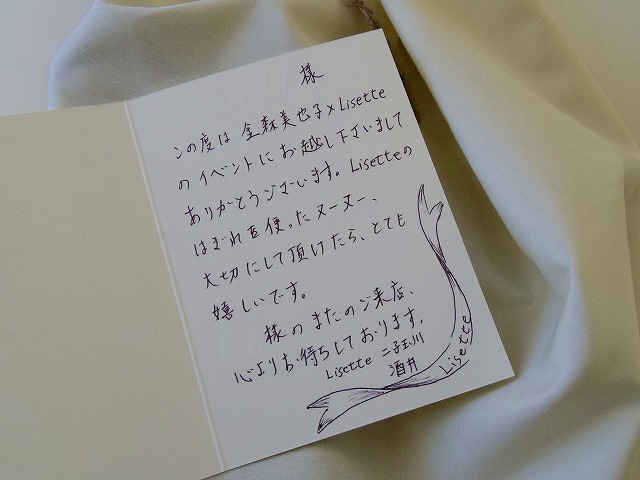 様
この度は 金森美也子×Lisette
のイベントにお越し下さいまして
ありがとうございます。Lisetteの
はぎれを使ったヌーヌー、
大切にして頂けたら、とても
嬉しいです。
様のまたのご来店、
心よりお待ちしております。
Lisette 二子玉川
酒井
Lisette